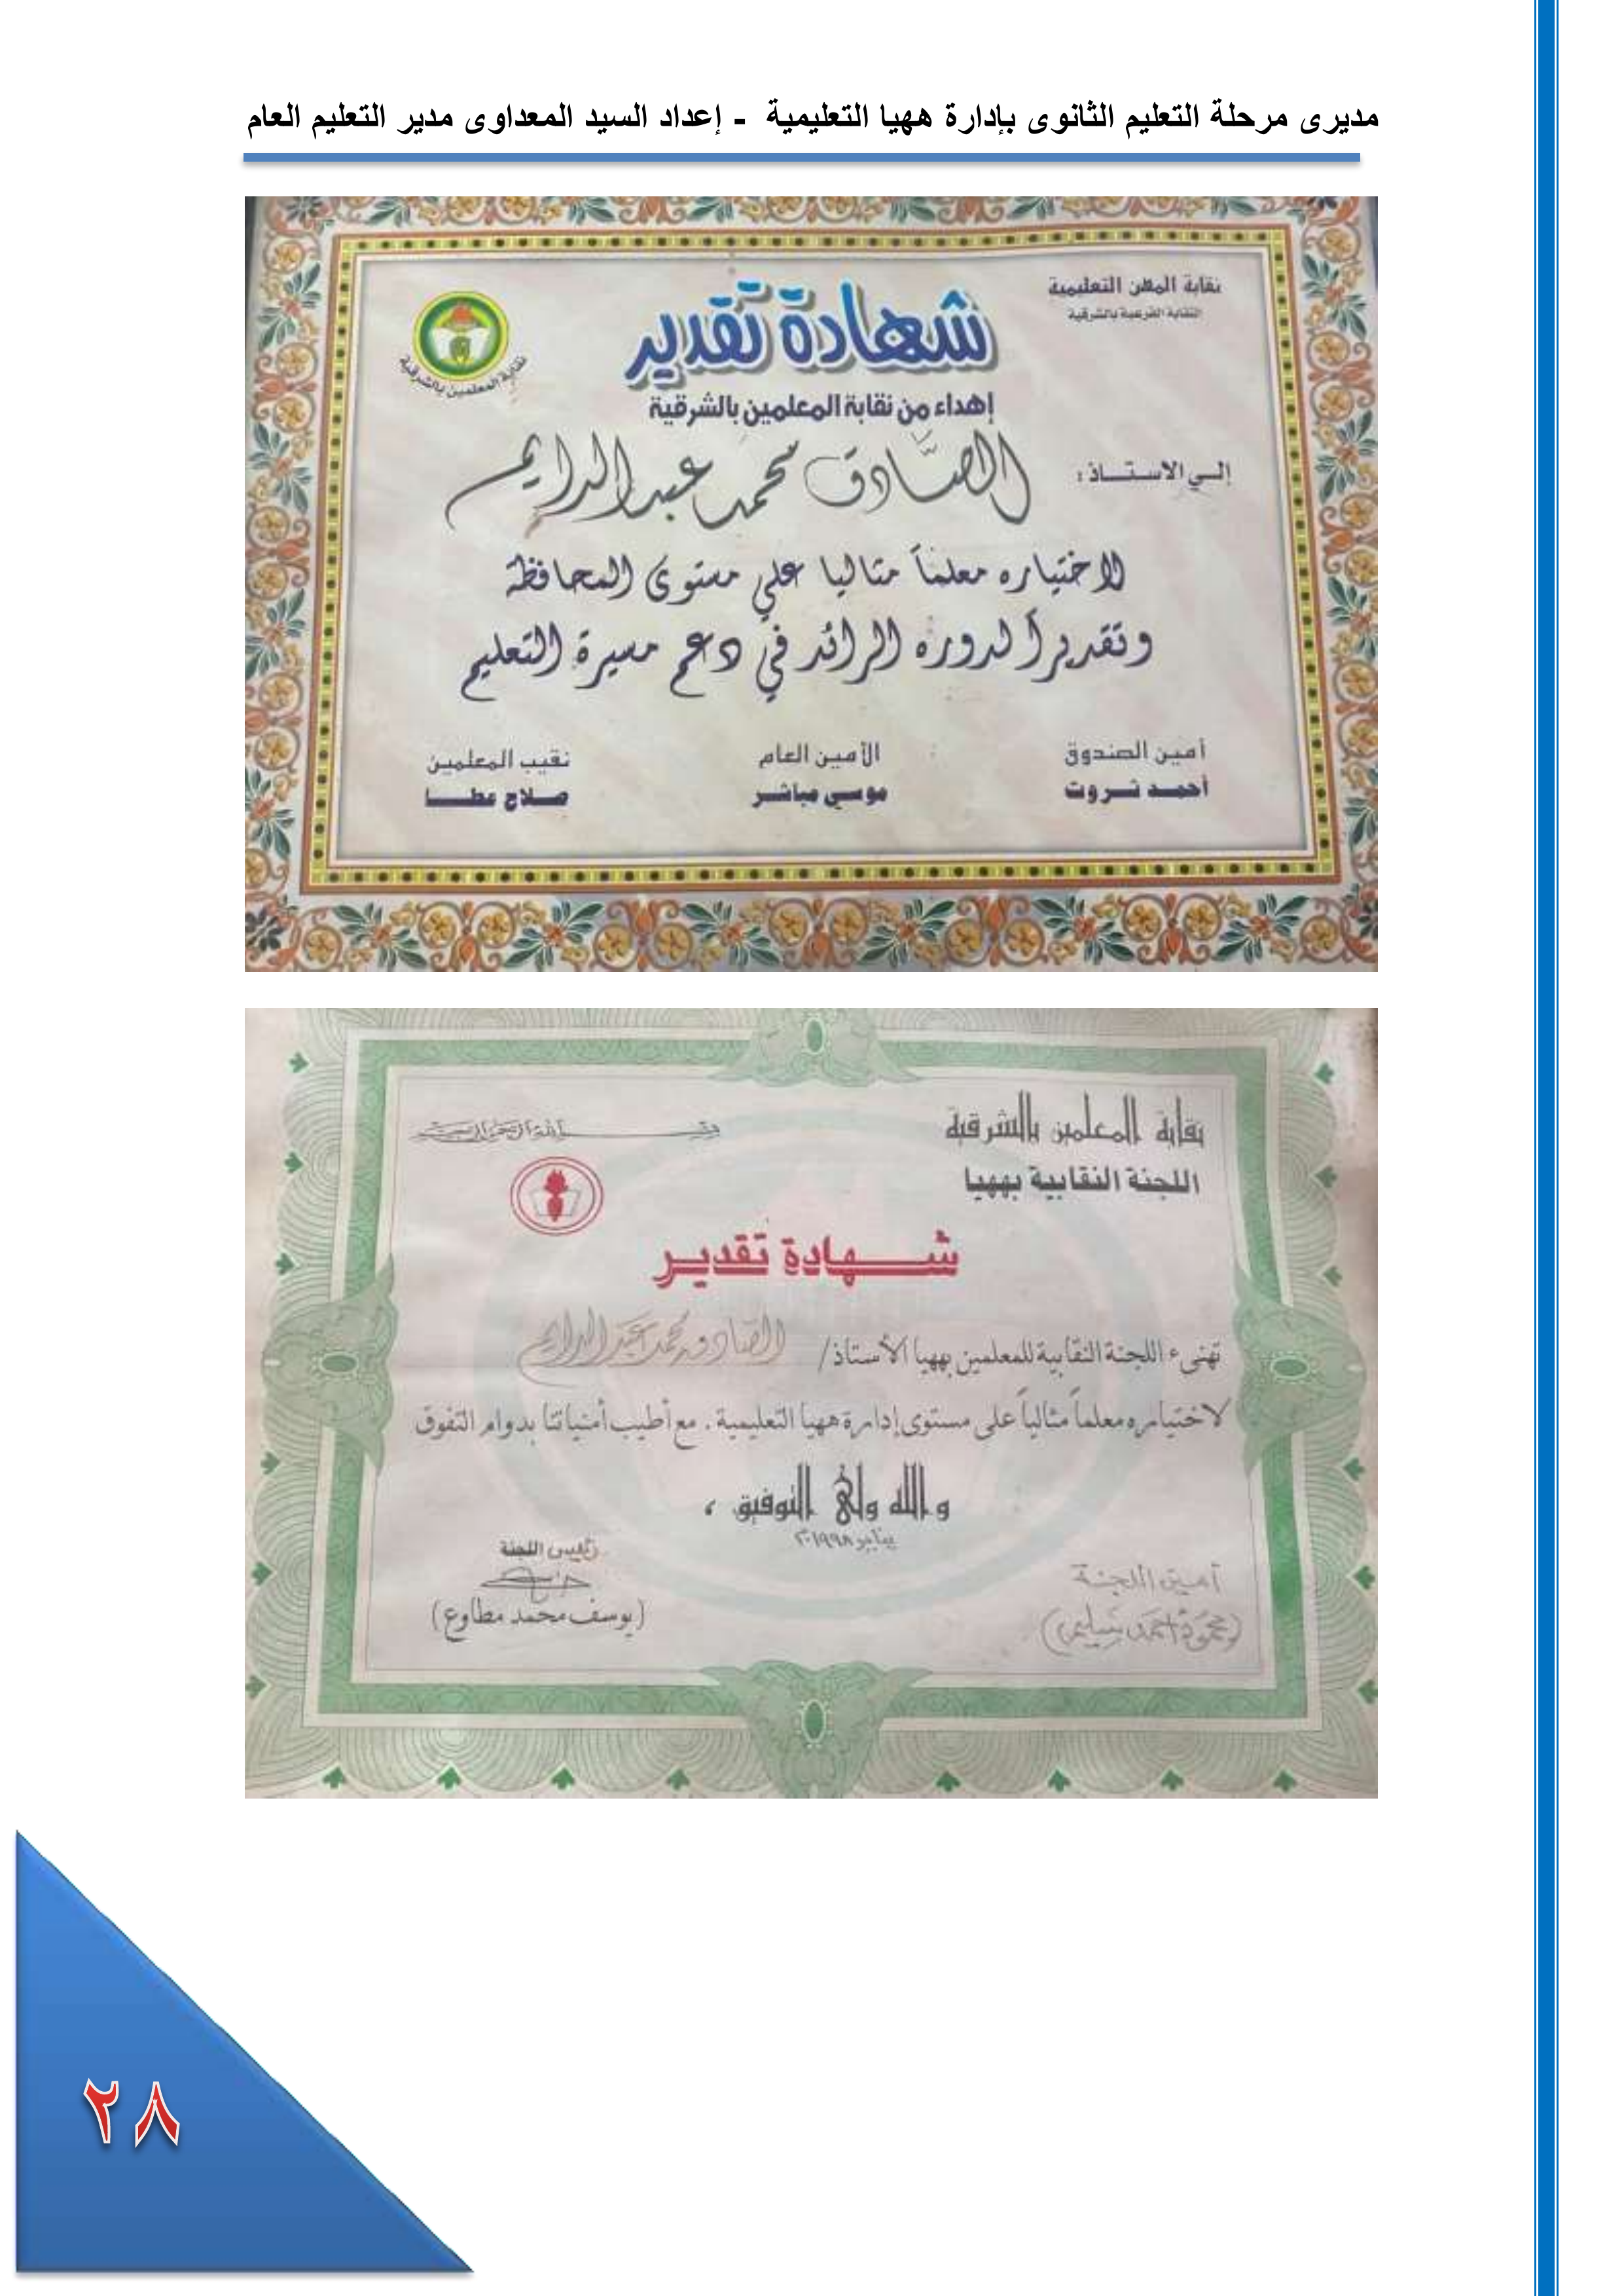 مديرى مرحلة التعليم الثانوى بإدارة ههيا التعليمية - إعداد السيد المعداوى مدير التعليم العام
نقابة المهن التعليمية
النقابة الفرعية بالشرقية
نقابة المعلمين بالشرقية
شهادة تقدير
إهداء من نقابة المعلمين بالشرقية
إلي الاستاذ : الصَّادق محمد عبد الدايم
لاختياره معلماً مثاليا علي مستوى المحافظة
وتقديراً لدوره الرائد في دعم مسيرة التعليم
أمين الصندوق الأمين العام نقيب المعلمين
أحمد ثروت موسي مباشر صلاح عطا
نقابة المعلمين بالشرقية
بسم الله الرحمن الرحيم
اللجنة النقابية بههيا
شهادة تقدير
تهنىء اللجنة النقابية للمعلمين بههيا الأستاذ/ الصادق محمد عبد الدايم
لاختياره معلماً مثالياً على مستوى إدارة ههيا التعليمية . مع أطيب أمنياتنا بدوام التفوق
والله ولى التوفيق ،
يناير ١٩٩٨م
أمين اللجنة رئيس اللجنة
(محمود أحمد سليم) (يوسف محمد مطاوع)
٢٨